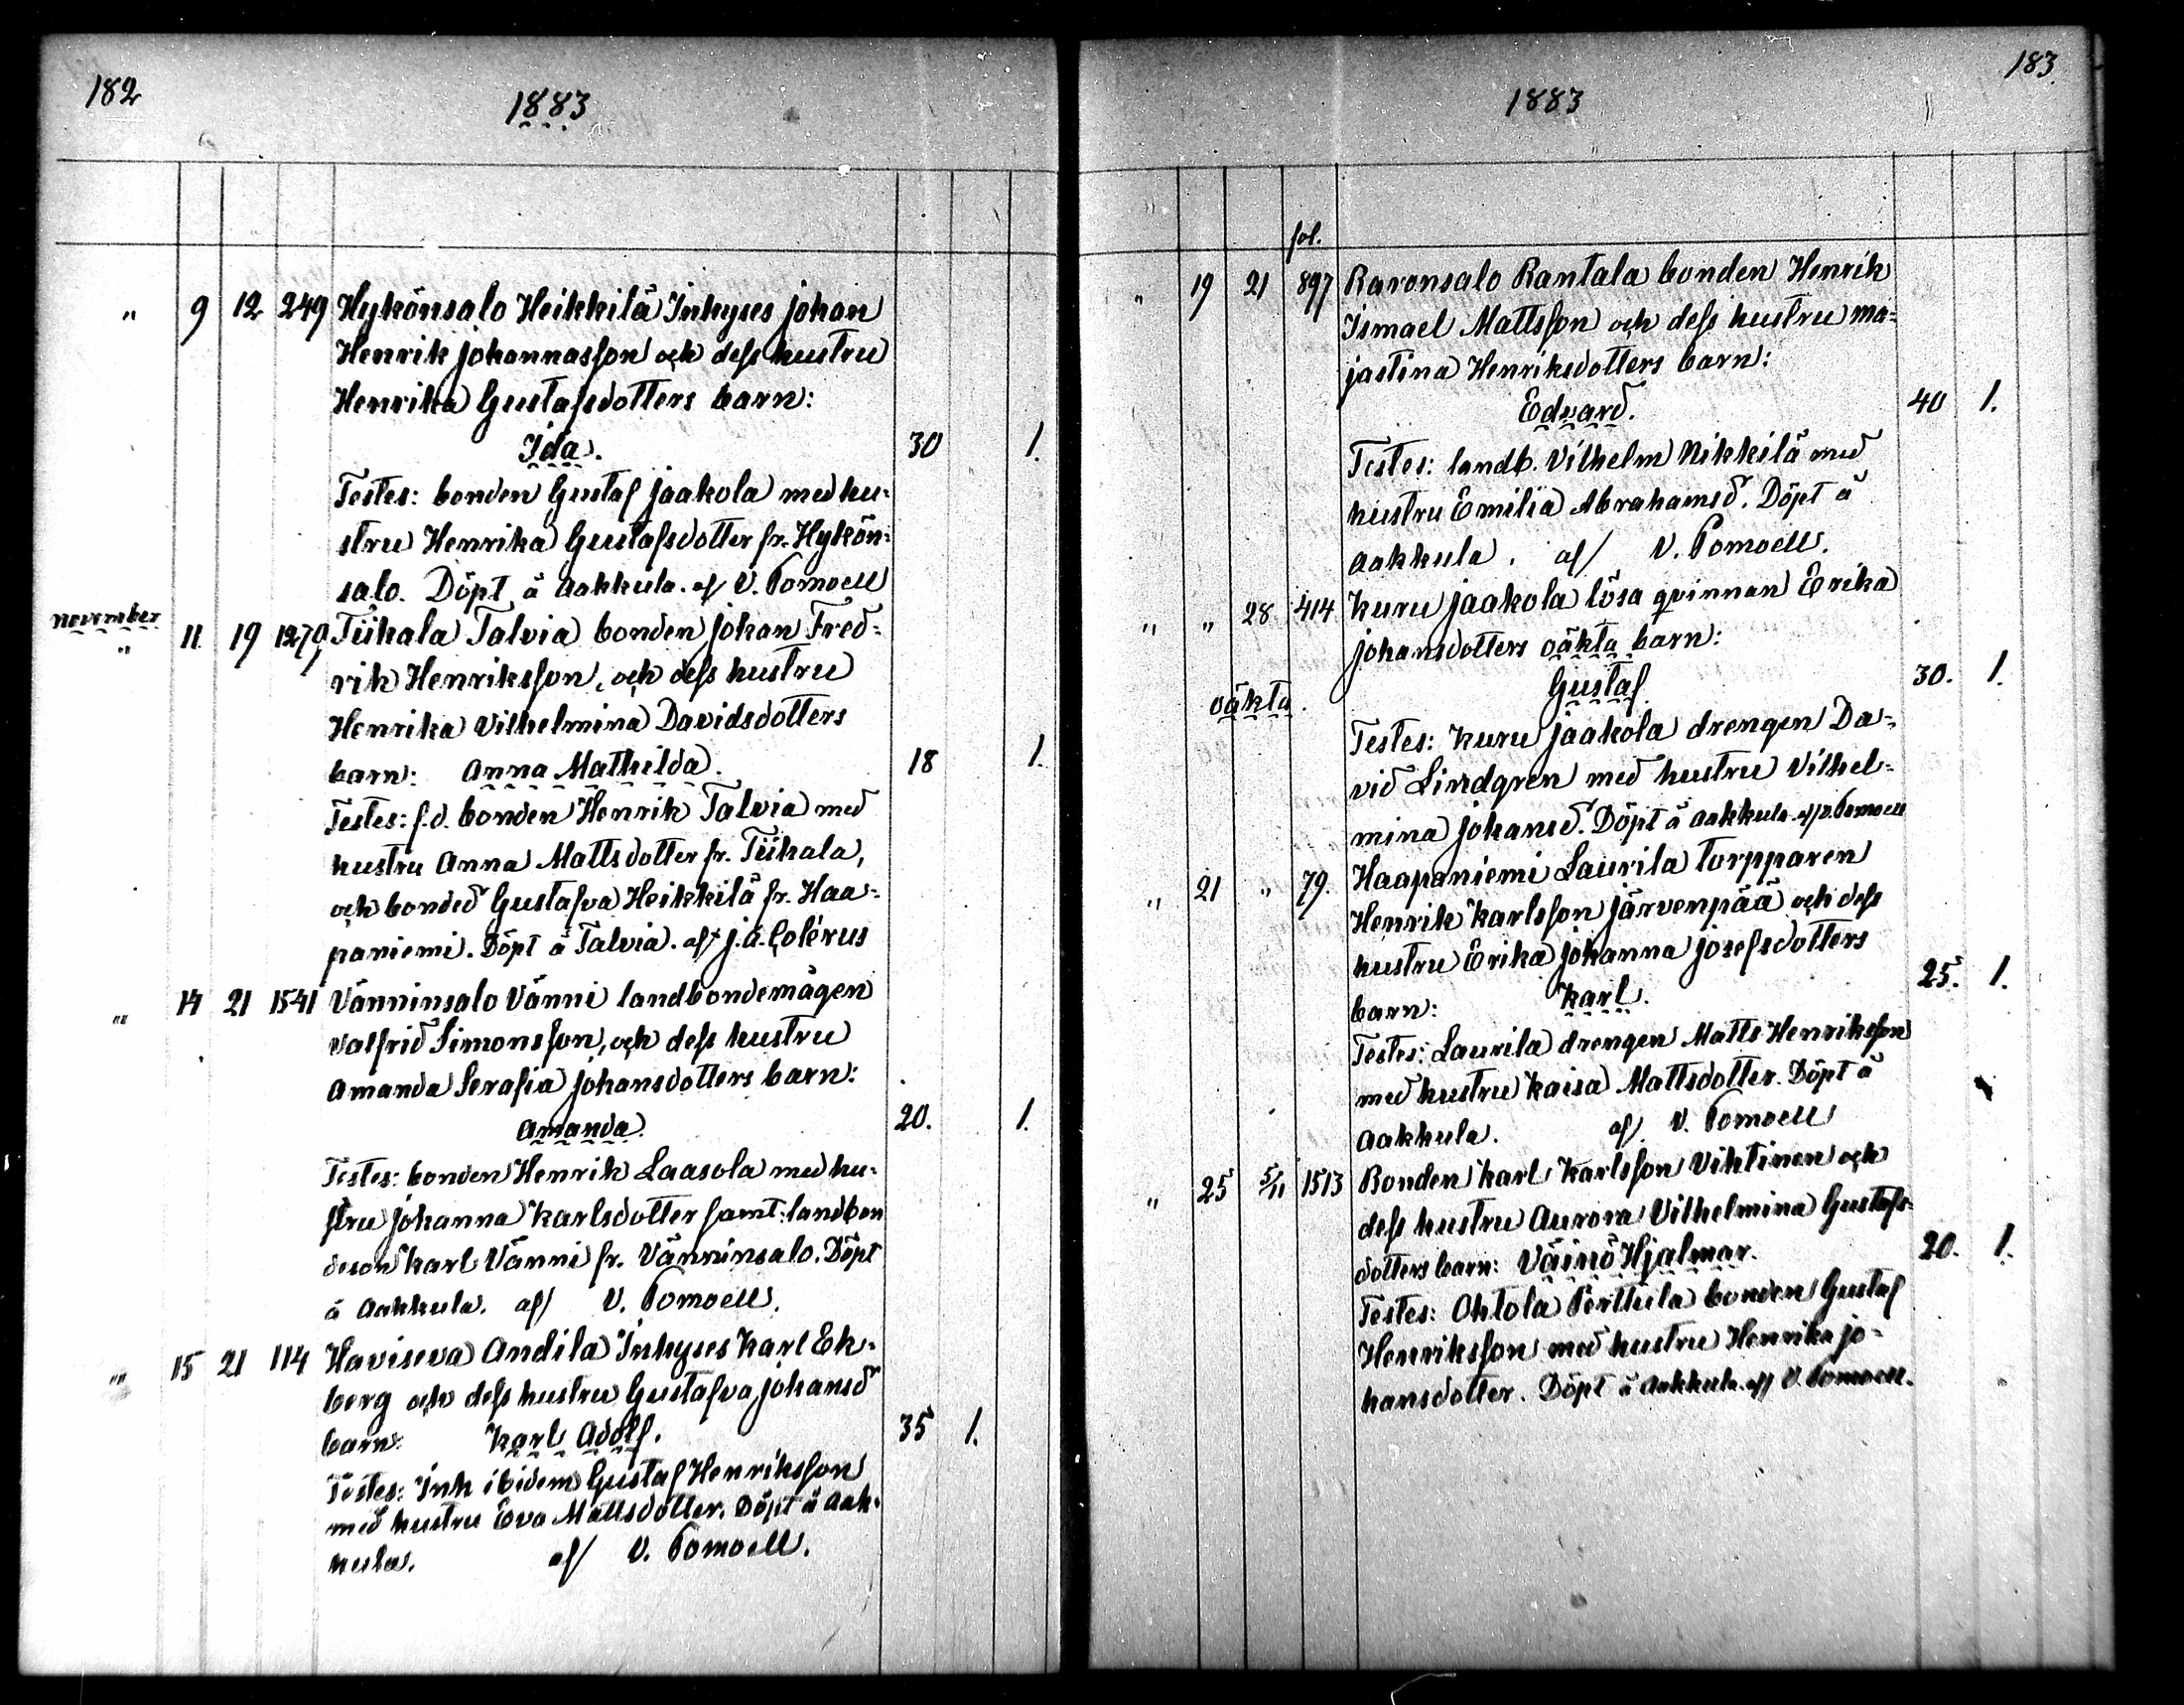 182
1883
" 9 12 249 Hykönsalo Heikkilä Inhyses Johan
Henrik Johannasson och dess hustru
Henrika Gustafsdotters barn:
Ida. 30 1.
Testes: bonden Gustaf Jaakola med hu-
stru Henrika Gustafsdotter fr. Hykön-
salo. Döpt å Aakkula. af V. Pomoell
november
" 11 19 1279 Tiihala Talvia bonden Johan Fred-
rik Henriksson, och dess hustru
Henrika Vilhelmina Davidsdotters
barn: Anna Mathilda. 18 1.
Testes: f.d. bonden Henrik Talvia med
hustru Anna Mattsdotter fr. Tiihala,
och bonded Gustafva Heikkilä fr. Haa-
paniemi. Döpt å Talvia. af J. A. Colérus
" 14 21 1541 Vänninsalo Vänni landbondemågen
Valfrid Simonsson, och dess hustru
Amanda Serafia Johansdotters barn:
Amanda. 20. 1.
Testes: bonden Henrik Laasola med hu-
stru Johanna Karlsdotter samt: landbon
deson Karl Vänni fr. Vänninsalo. Döpt
å Aakkula. af V. Pomoell.
" 15 21 114 Haviseva Andila Inhyses Karl Ek-
berg och dess hustru Gustafva Johansd
barn: Karl Adolf. 35 1.
Testes: Inh ibidem Gustaf Henriksson
med hustru Eva Mattsdotter. Döpt å Aak-
kula. af V. Pomoell.
183
1883
fol.
" 19 21 897 Raronsalo Rantala bonden Henrik
Ismael Mattsson och dess hustru Ma-
jastina Henriksdotters barn:
Edvard. 40 1.
Testes: landb. Vilhelm Nikkilä med
hustru Emilia Abrahamsd. Döpt å
Aakkula. af V. Pomoell.
" " 28 414 Kuru Jaakola lösa qvinnan Erika
Johansdotters oäkta barn:
oäkta. Gustaf 30. 1.
Testes: Kuru Jaakola drengen Da-
vid Lindgren med hustru Vilhel-
mina Johansd. Döpt å Aakkula af V. Pomoell
" 21 " 79. Haapaniemi Laurila torpparen
Henrik Karlsson Järvenpää och dess
hustru Erika Johanna Josefsdotters
barn: Karl. 25. 1.
Testes: Laurila drengen Matts Henriksson
med hustru Kaisa Mattsdotter. Döpt å
Aakkula. af V. Pomoell
" 25 5/11 1513 Bonden Karl Karlsson Vihtinen och
dess hustru Aurora Vilhelmina Gustafs-
dotters barn: Väinö Hjalmar. 20. 1.
Testes: Ohtola Perttula bonden Gustaf
Henriksson med hustru Henrika Jo-
hansdotter. Döpt å Aakkula. af V. Pomoell.